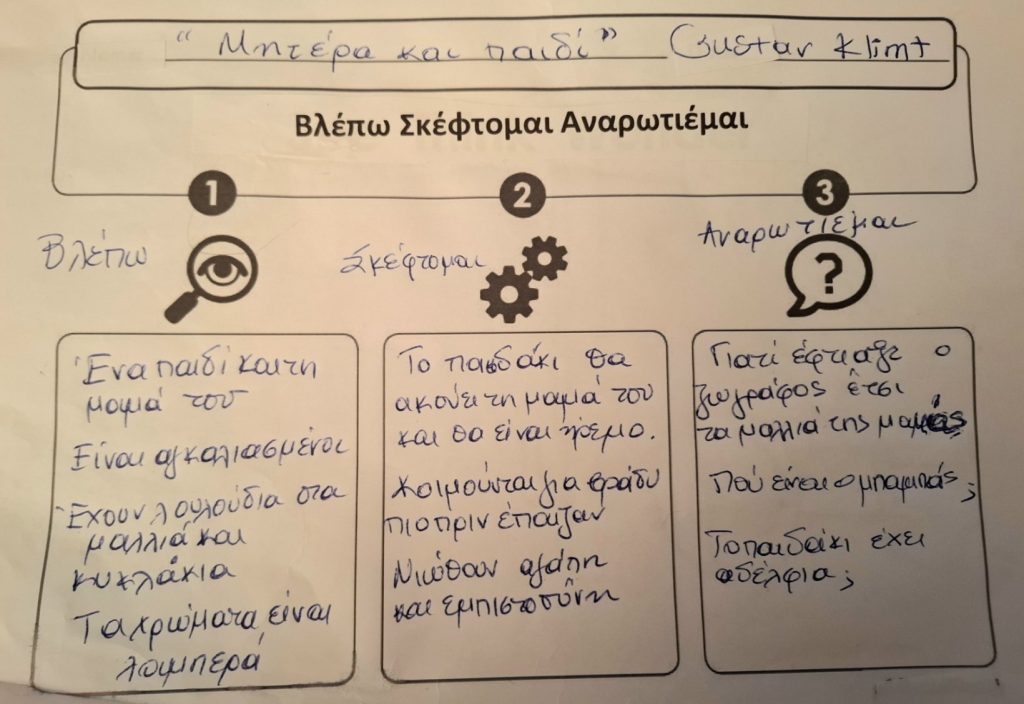 "Μητέρα και παιδί" Gustav Klimt
Βλέπω Σκέφτομαι Αναρωτιέμαι
1
2
3
Βλέπω
Σκέφτομαι
Αναρωτιέμαι
?
Ένα παιδί και τη
μαμά του
Είναι αγκαλιασμένοι
Έχουν λουλούδια στα
μαλλιά και
κυκλάκια
Τα χρώματα είναι
λαμπερά
Το παιδάκι θα
ακούει τη μαμά του
και θα είναι ήρεμο.
Κοιμούνται για βράδυ
πιο πριν έπαιζαν
Νιώθουν αγάπη
και εμπιστοσύνη
Γιατί έφτιαξε ο
ζωγράφος έτσι
τα μαλλιά της μαμάς
Πού είναι ο μπαμπάς;
Το παιδάκι έχει
αδέλφια;